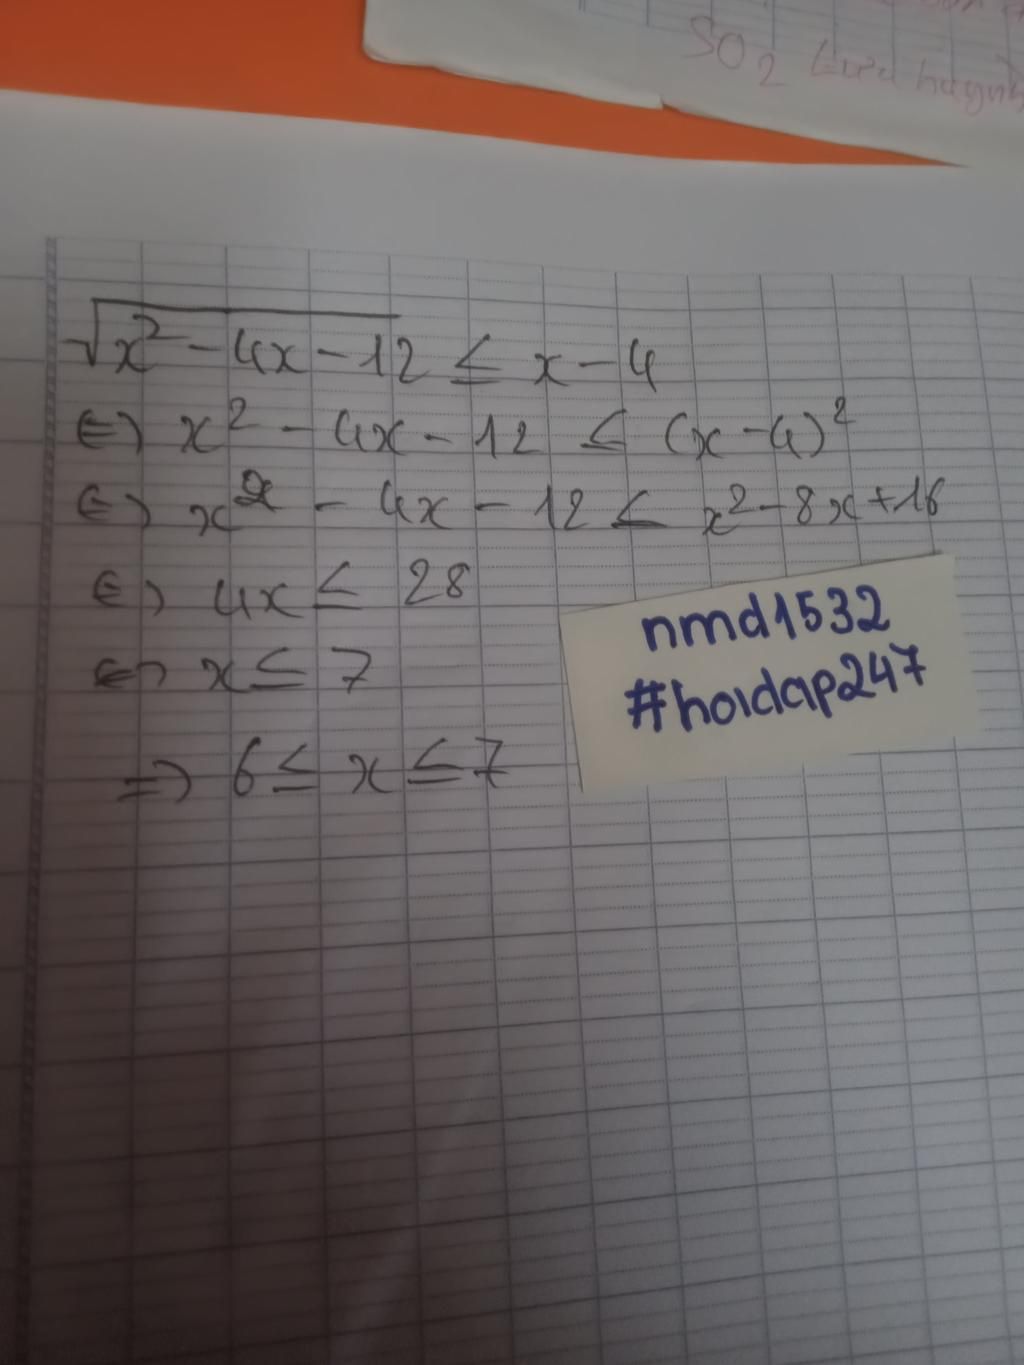 SO2
√x² - 4x - 12 ≤ x - 4
⇔ x² - 4x - 12 ≤ (x - 4)²
⇔ x² - 4x - 12 ≤ x² - 8x + 16
⇔ 4x ≤ 28
⇔ x ≤ 7
⇒ 6 ≤ x ≤ 7
nmd1532
#hoidap247